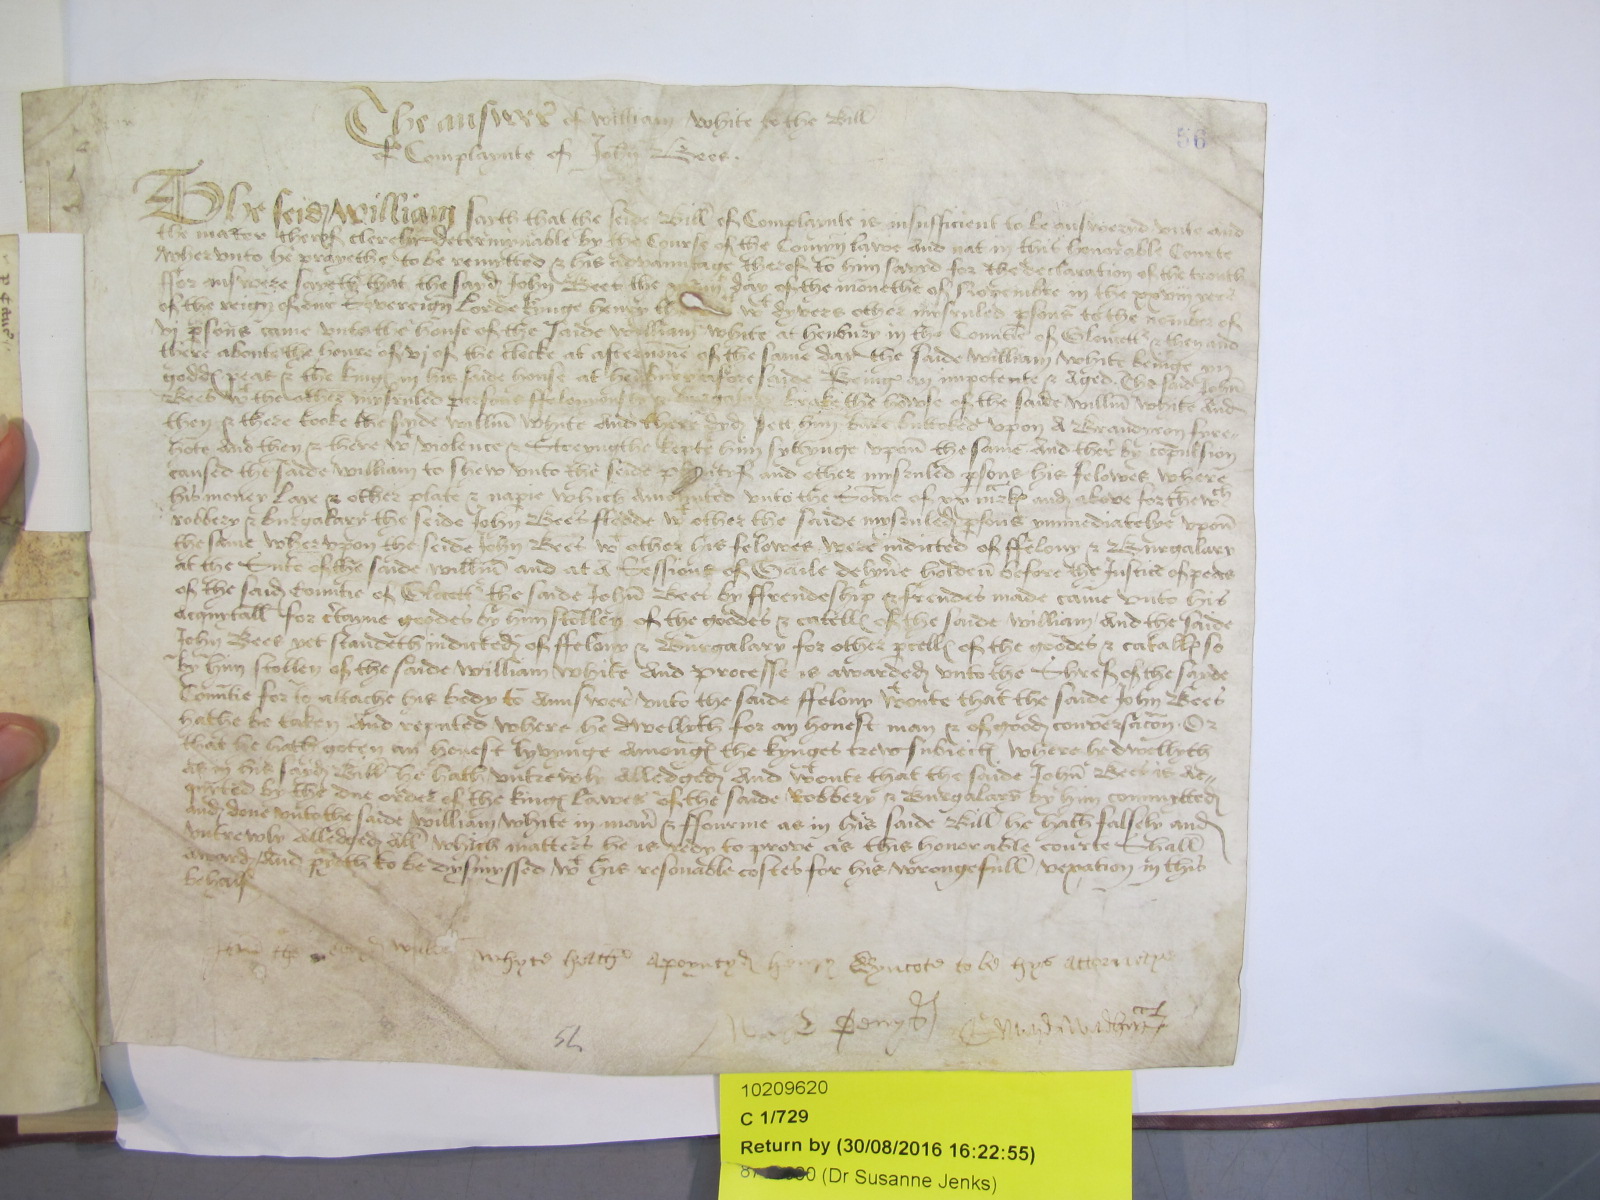 The answere of william white to the Bill
of Complaynte of John Bees.
56
The seid william saith that the seide Bill of Complaynte is insufficient to be answeryd vnto and
the mater therof clerely determinable by the Course of the Comyn lawe And nat in this honorable Courte
Wher vnto he prayethe to be remitted & his Advauntage therof to him savyd for the declaration of the trouth
ffor answere saieth that the sayd John Bees the day of the monethe of Novembre in the xxviij yere
of the reign of our Sovereign Lorde kinge henry the wt dyvers other mysruled psons to the nomber of
vj psons came vnto the house of the saide william white at henbury in the Countie of Gloucestr & then and
there aboute the houre of vj of the clocke at afternone of the same day the saide william white beinge in
godds peas & the kings in his saide house at henbury aforesaide Being an impotente & Aged. The said John
Bees wt the other mysruled persons ffeloniously & burgalary brake the howse of the saide willm white And
then & there tooke the saide willm white And there dyd sett him bare buttoked vpon A Brandyron fyre
hote And then & there wt violence & Strenngthe kepte him syttynge vpon the same And ther by compulsion
caused the saide william to shew vnto the seide and other mysruled psons his felowes where
his money Lay & other plate & naprie which Amounted vnto the Some of mrks and above for the wch
robbery & burgalary the seide John Bees fledde wt other the saide mysruled psons ymmediatelye vpon
the same wher vpon the seide John Bees wt other his felowes were indicted of ffelony & Burgalary
at the Sute of the saide willm and at A Sessions of Gaile delyve holden before the Justice of peas
of the said Countie of Gloucestr the saide John Bees by ffrendeship & ffrendes made came vnto his
acquytall for ctayne goodes by him stollen of the goodes & catells of the saide william And the saide
John Bees yet standeth indicted of ffelony & Burgalary for other pcells of the goodes & catalls so
by him stollen of the saide william white And processe is awarded vnto the Shref of the saide
Countie for to attache his body to Aunswer vnto the saide ffelony wtoute that the saide John Bees
hathe be taken And reputed where he dwellyth for an honest man & of good conversacon Or
that he hath goten an honest lyvynge Amongs the kynges trew subiects where he dwellyth
As in his sayd Bill he hath vntrewly Alledged And wtoute that the saide John Bees is Ac
quited by the due order of the kings Lawes of the saide Robbery & Burgalary by him committed
and done vnto the saide william white in maner & ffourme as in his saide Bill he hath falsely and
vntrewly Alledged All which matters he is redy to prove as this honorable courte Shall
Award And prayeth to be dysmyssed wt his resonable costes for his wrongefull vexation in this
behalf
the whyte hath Apoyntyd henry Wyncote to be hys attorney
56
10209620
C 1/729
Return by (30/08/2016 16:22:55)
(Dr Susanne Jenks)